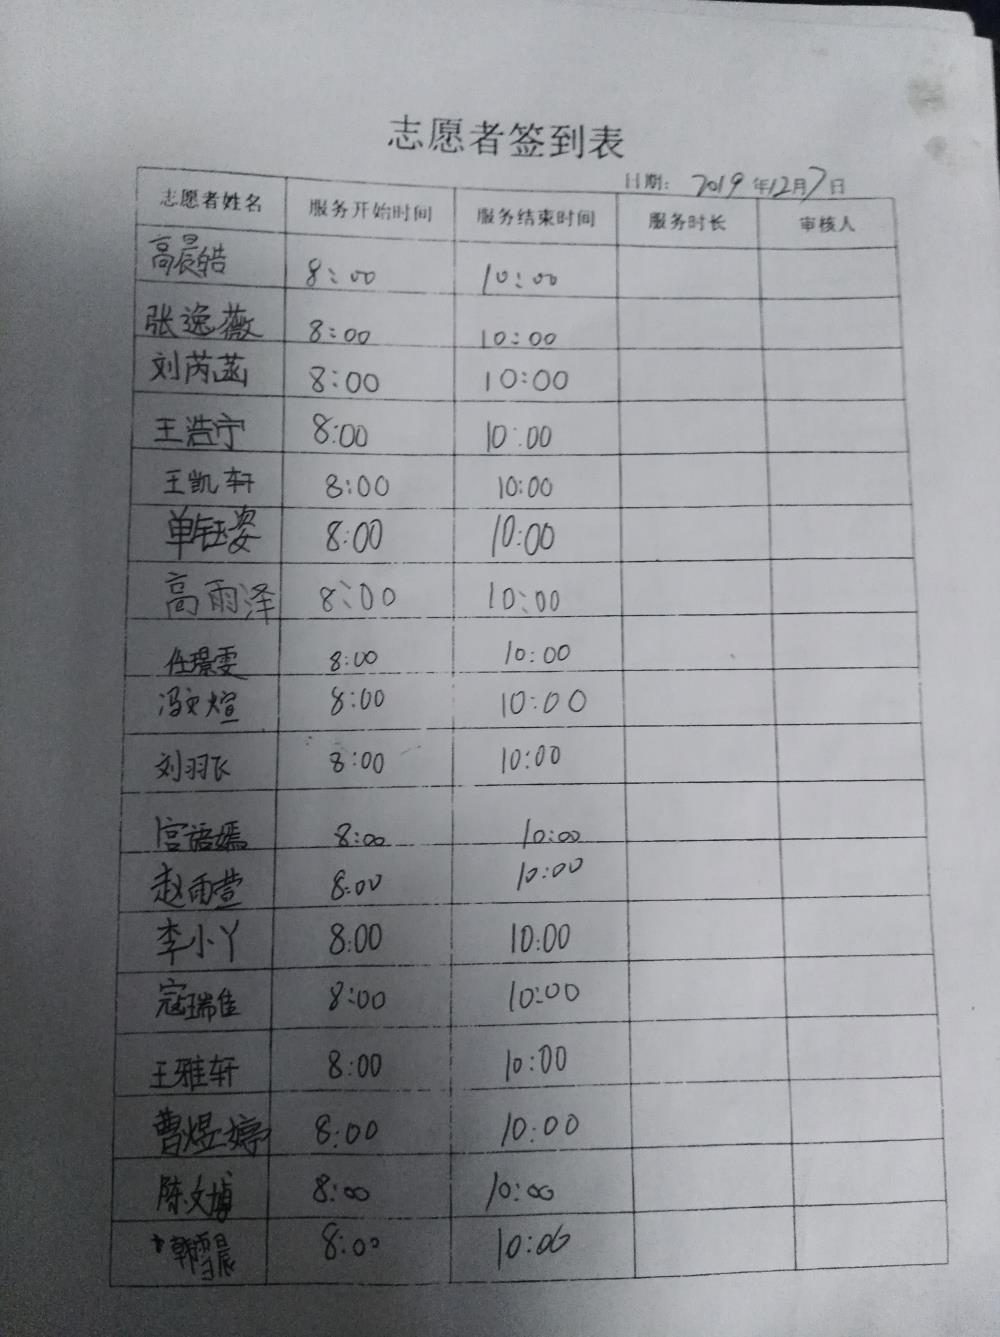 志愿者签到表
日期: 2019年12月7日
志愿者姓名 服务开始时间 服务结束时间 服务时长 审核人
高晨皓 8:00 10:00
张逸薇 8:00 10:00
刘芮菡 8:00 10:00
王浩宁 8:00 10:00
王凯轩 8:00 10:00
单钰姿 8:00 10:00
高雨泽 8:00 10:00
任璟雯 8:00 10:00
冯文煊 8:00 10:00
刘羽飞 8:00 10:00
宫语嫣 8:00 10:00
赵雨萱 8:00 10:00
李小丫 8:00 10:00
寇瑞佳 8:00 10:00
王雅轩 8:00 10:00
曹煜婷 8:00 10:00
陈文博 8:00 10:00
韩雪晨 8:00 10:00